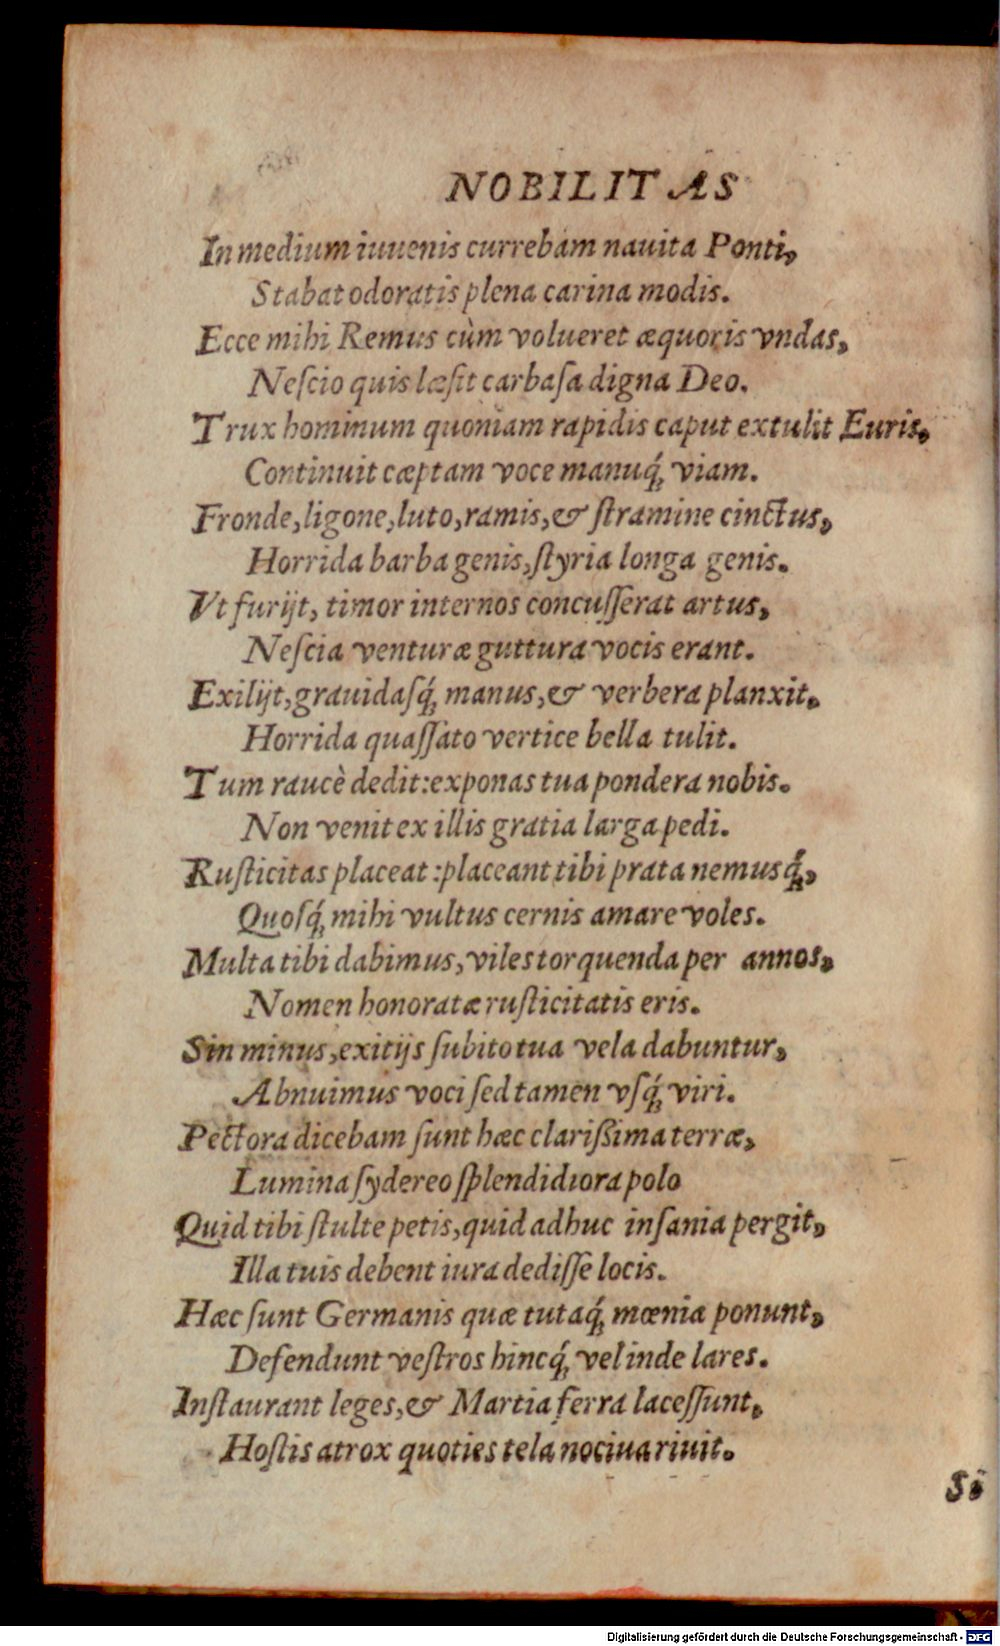 NOBILITAS
In medium iuuenis currebam nauita Ponti,
Stabat odoratis plena carina modis.
Ecce mihi Remus cùm volueret æquoris vndas,
Neſcio quis læſit carbaſa digna Deo.
Trux hominum quoniam rapidis caput extulit Euris,
Continuit cæptam voce manuq́; viam.
Fronde, ligone, luto, ramis, & ſtramine cinctus,
Horrida barba genis, ſtyria longa genis.
Vt furijt, timor internos concuſſerat artus,
Neſcia venturæ guttura vocis erant.
Exilijt, grauidaſq́; manus, & verbera planxit,
Horrida quaſſato vertice bella tulit.
Tum raucè dedit: exponas tua pondera nobis.
Non venit ex illis gratia larga pedi.
Ruſticitas placeat: placeant tibi prata nemusq́;,
Quoſq́; mihi vultus cernis amare voles.
Multa tibi dabimus, viles torquenda per annos,
Nomen honoratæ ruſticitatis eris.
Sin minus, exitijs ſubito tua vela dabuntur,
Abnuimus voci ſed tamen vſq́; viri.
Pectora dicebam ſunt hæc clariſsima terræ,
Lumina ſydereo ſplendidiora polo
Quid tibi ſtulte petis, quid adhuc inſania pergit,
Illa tuis debent iura dediſſe locis.
Hæc ſunt Germanis quæ tutaq́; mœnia ponunt,
Defendunt veſtros hincq́; vel inde lares.
Inſtaurant leges, & Martia ferra laceſſunt,
Hoſtis atrox quoties tela nociua riuit.
Si
Digitalisierung gefördert durch die Deutsche Forschungsgemeinschaft - DFG